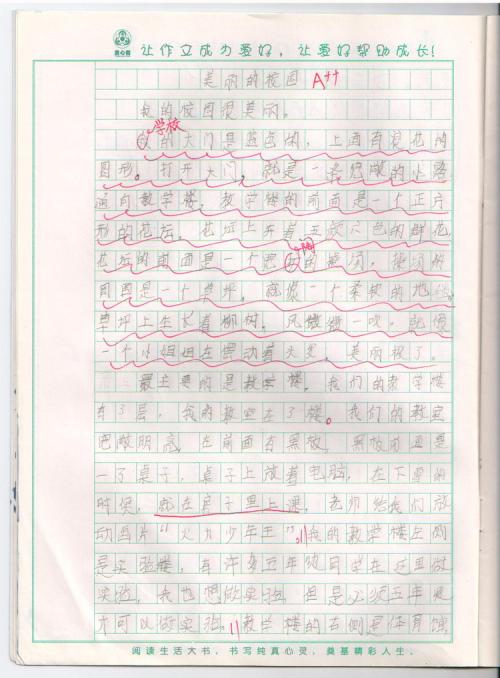 喜心香
让作文成为爱好，让爱好帮助成长！
美丽的校园 A++
我的校园很美丽。
学校
的大门是蓝色的，上面有浪花的
图形。打开大门，就是一条宽敞的小路
通向教学楼。教学楼的前面是一个正方
形的花坛。花坛上开着五颜六色的鲜花，
花坛的前面是一个宽的操场，操场的
周围是一个草坪。就像一个柔软的地毯。
草坪上生长着柳树。风微微一吹，就像
一个小姐姐在摆动着头发。美丽极了。
最主要的是教学楼。我们的教学楼
有3层，我的教室在3楼。我们的教室
宽敞明亮，在前面有黑板，黑板前面是
一个桌子，桌子上放着电脑，在下雨的
时候，就在房子里上课，老师给我们放
动画片“火力少年王”。我的教学楼左侧
是实验楼，有许多五年级同学在这里做
实验，我也想做实验，但是必须五年级
才可以做实验。教学楼的右侧是体育馆，
阅读生活大书，书写纯真心灵，奠基精彩人生。